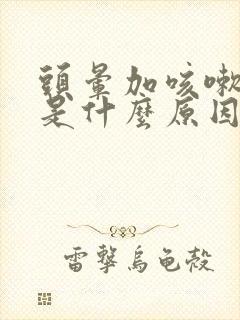 頭暈加咳嗽
是什麼原因
雷擊烏龜殼